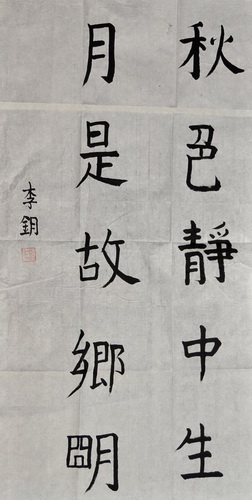 秋色靜中生
月是故鄉明
李鈅